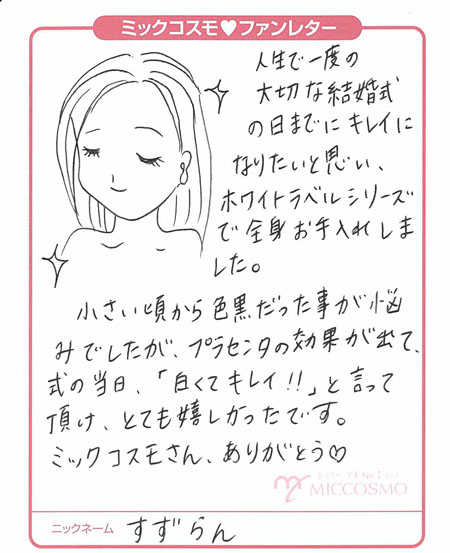 ミックコスモ♥ファンレター
人生で一度の
大切な結婚式
の日までにキレイに
なりたいと思い、
ホワイトラベルシリーズ
で全身お手入れしま
した。
小さい頃から色黒だった事が悩
みでしたが、プラセンタの効果が出て、
式の当日、「白くてキレイ!!」と言って
頂け、とても嬉しかったです。
ミックコスモさん、ありがとう♡
MICCOSMO
ニックネーム すずらん